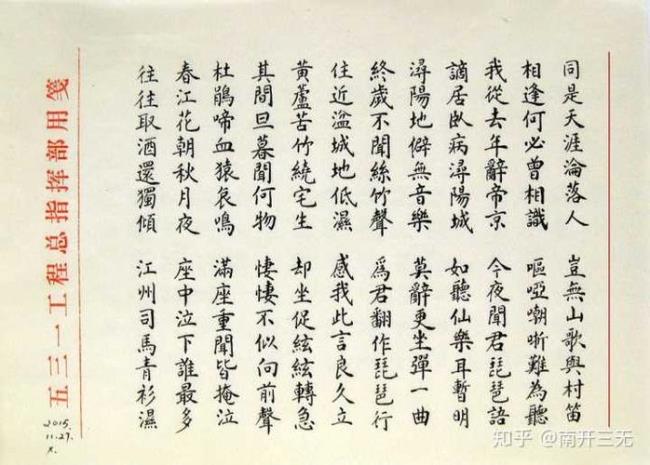 同是天涯淪落人
相逢何必曾相識
我從去年辭帝京
謫居臥病潯陽城
潯陽地僻無音樂
終歲不聞絲竹聲
住近湓城地低濕
黃蘆苦竹繞宅生
其間旦暮聞何物
杜鵑啼血猿哀鳴
春江花朝秋月夜
往往取酒還獨傾
豈無山歌與村笛
嘔啞嘲哳難為聽
今夜聞君琵琶語
如聽仙樂耳暫明
莫辭更坐彈一曲
爲君翻作琵琶行
感我此言良久立
却坐促絃絃轉急
悽悽不似向前聲
滿座重聞皆掩泣
座中泣下誰最多
江州司馬青衫濕
五三一工程总指挥部用笺
2015.
11.27.
知乎 @南开三无